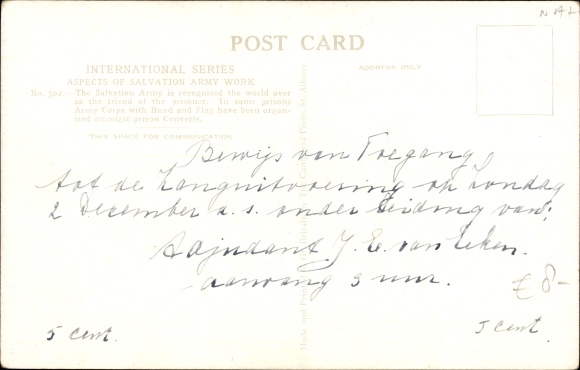 N A L
POST CARD
INTERNATIONAL SERIES
ADDRESS ONLY
ASPECTS OF SALVATION ARMY WORK
No. 502.—The Salvation Army is recognised the world over
as the friend of the prisoner. In some prisons
Army Corps with Band and Flag have been organ-
ized amongst prison Converts.
THIS SPACE FOR COMMUNICATION
Bewijs van Toegang
tot de Zanguitvoering op Zondag
2 December a.s. onder Leiding van:
Adjudant J. E. van
aanvang 3 uur.
£ 8-
5 cent.
5 cent.
Made and Printed Campfield Press, St. Albans